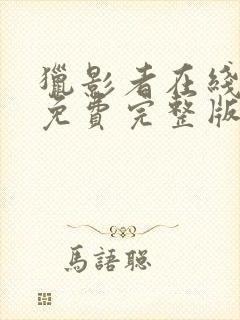 獵影者在綫
免費完整版
馬語聡